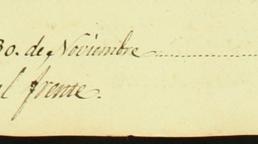 30. de Noviembre
el frente.